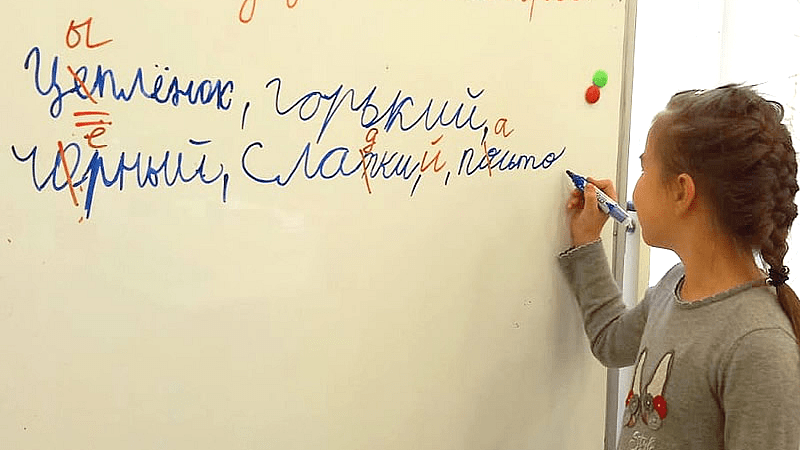 ы
Цеплёнок, горький,
ё д а
чорный, слатки,й, польто